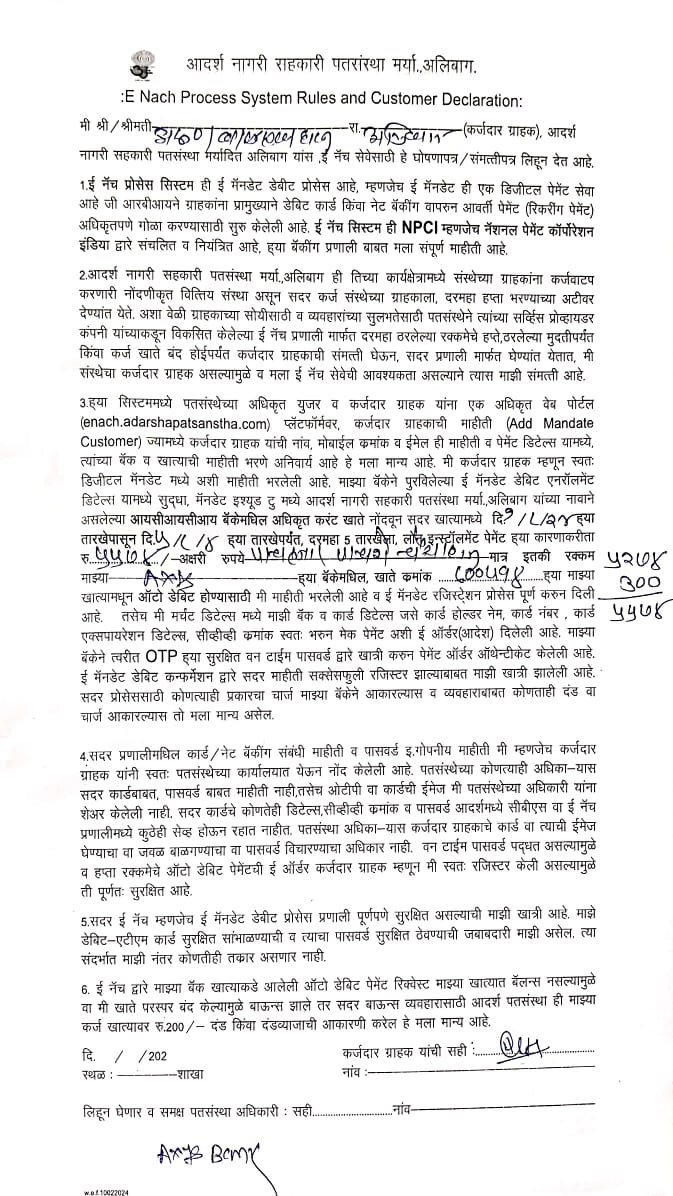 आदर्श नागरी सहकारी पतसंस्था मर्या.,अलिबाग.
:E Nach Process System Rules and Customer Declaration:
मी श्री/श्रीमती रा. (कर्जदार ग्राहक), आदर्श
नागरी सहकारी पतसंस्था मर्यादित अलिबाग यांस ,ई नॅच सेवेसाठी हे घोषणापत्र/संमत्तीपत्र लिहून देत आहे.
1.ई नॅच प्रोसेस सिस्टिम ही ई मॅनडेट डेबीट प्रोसेस आहे, म्हणजेच ई मॅनडेट ही एक डिजीटल पेमेंट सेवा
आहे जी आरबीआयने ग्राहकांना प्रामुख्याने डेबिट कार्ड किंवा नेट बॅकींग वापरुन आवर्ती पेमेंट (रिकरींग पेमेंट)
अधिकृतपणे गोळा करण्यासाठी सुरु केलेली आहे. ई नॅच सिस्टम ही NPCI म्हणजेच नॅशनल पेमेंट कॉर्पोरेशन
इंडिया द्वारे संचलित व नियंत्रित आहे, ह्या बॅकींग प्रणाली बाबत मला संपूर्ण माहीती आहे.
2.आदर्श नागरी सहकारी पतसंस्था मर्या.,अलिबाग ही तिच्या कार्यक्षेत्रामध्ये संस्थेच्या ग्राहकांना कर्जवाटप
करणारी नोंदणीकृत वित्तिय संस्था असून सदर कर्ज संस्थेच्या ग्राहकाला, दरमहा हप्ता भरण्याच्या अटीवर
देण्यांत येते. अशा वेळी ग्राहकाच्या सोयीसाठी व व्यवहारांच्या सुलभतेसाठी पतसंस्थेने त्यांच्या सर्व्हिस प्रोव्हायडर
कंपनी यांच्याकडून विकसित केलेल्या ई नॅच प्रणाली मार्फत दरमहा ठरलेल्या रक्कमेचे हप्ते,ठरलेल्या मुदतीपर्यंत
किंवा कर्ज खाते बंद होईपर्यंत कर्जदार ग्राहकाची संमत्ती घेऊन, सदर प्रणाली मार्फत घेण्यांत येतात, मी
संस्थेचा कर्जदार ग्राहक असल्यामुळे व मला ई नॅच सेवेची आवश्यकता असल्याने त्यास माझी संमत्ती आहे.
3.ह्या सिस्टिममध्ये पतसंस्थेच्या अधिकृत युजर व कर्जदार ग्राहक यांना एक अधिकृत वेब पोर्टल
(enach.adarshapatsanstha.com) प्लॅटफॉर्मवर, कर्जदार ग्राहकाची माहीती (Add Mandate
Customer) ज्यामध्ये कर्जदार ग्राहक यांची नांव, मोबाईल कमांक व ईमेल ही माहीती व पेमेंट डिटेल्स यामध्ये,
त्यांच्या बॅक व खात्याची माहीती भरणे अनिवार्य आहे हे मला मान्य आहे. मी कर्जदार ग्राहक म्हणून स्वतः
डिजीटल मॅनडेट मध्ये अशी माहीती भरलेली आहे. माझ्या बॅकेने पुरविलेल्या ई मॅनडेट डेबिट एनरॉलमेंट
डिटेल्स यामध्ये सुद्धा, मॅनडेट इश्यूड टु मध्ये आदर्श नागरी सहकारी पतसंस्था मर्या.,अलिबाग यांच्या नावाने
असलेल्या आयसीआयसीआय बॅकेमधिल अधिकृत करंट खाते नोंदवून सदर खात्यामध्ये दि. ह्या
तारखेपासून दि. ह्या तारखेपर्यंत, दरमहा 5 तारखेला, लोन इन्स्टॉलमेंट पेमेंट ह्या कारणाकरीता
रु. ५५७४ /-अक्षरी रुपये मात्र इतकी रक्कम ५२७४
माझ्या AXB ह्या बॅकेमधिल, खाते कमांक ह्या माझ्या 300
खात्यामधून ऑटो डेबिट होण्यासाठी मी माहीती भरलेली आहे व ई मॅनडेट रजिस्ट्रेशन प्रोसेस पूर्ण करुन दिली ५५७४
आहे. तसेच मी मर्चंट डिटेल्स मध्ये माझी बॅक व कार्ड डिटेल्स जसे कार्ड होल्डर नेम, कार्ड नंबर , कार्ड
एक्सपायरेशन डिटेल्स, सीव्हीव्ही कमांक स्वतः भरुन मेक पेमेंट अशी ई ऑर्डर(आदेश) दिलेली आहे. माझ्या
बॅकेने त्वरीत OTP ह्या सुरक्षित वन टाईम पासवर्ड द्वारे खात्री करुन पेमेंट ऑर्डर ऑथेन्टीकेट केलेली आहे.
ई मॅनडेट डेबिट कन्फर्मेशन द्वारे सदर माहीती सक्सेसफुली रजिस्टर झाल्याबाबत माझी खात्री झालेली आहे.
सदर प्रोसेससाठी कोणत्याही प्रकारचा चार्ज माझ्या बॅकेने आकारल्यास व व्यवहाराबाबत कोणताही दंड वा
चार्ज आकारल्यास तो मला मान्य असेल.
4.सदर प्रणालीमधिल कार्ड/नेट बॅकींग संबंधी माहीती व पासवर्ड इ.गोपनीय माहीती मी म्हणजेच कर्जदार
ग्राहक यांनी स्वतः पतसंस्थेच्या कार्यालयात येऊन नोंद केलेली आहे. पतसंस्थेच्या कोणत्याही अधिका-यास
सदर कार्डबाबत, पासवर्ड बाबत माहीती नाही,तसेच ओटीपी वा कार्डची ईमेज मी पतसंस्थेच्या अधिकारी यांना
शेअर केलेली नाही. सदर कार्डचे कोणतेही डिटेल्स,सीव्हीव्ही कमांक व पासवर्ड आदर्शमध्ये सीबीएस वा ई नॅच
प्रणालीमध्ये कुठेही सेव्ह होऊन रहात नाहीत. पतसंस्था अधिका-यास कर्जदार ग्राहकाचे कार्ड वा त्याची ईमेज
घेण्याचा वा जवळ बाळगण्याचा वा पासवर्ड विचारण्याचा अधिकार नाही. वन टाईम पासवर्ड पद्धत असल्यामुळे
व हप्ता रक्कमेचे ऑटो डेबिट पेमेंटची ई ऑर्डर कर्जदार ग्राहक म्हणून मी स्वतः रजिस्टर केली असल्यामुळे
ती पूर्णतः सुरक्षित आहे.
5.सदर ई नॅच म्हणजेच ई मॅनडेट डेबीट प्रोसेस प्रणाली पूर्णपणे सुरक्षित असल्याची माझी खात्री आहे. माझे
डेबिट-एटीएम कार्ड सुरक्षित सांभाळण्याची व त्याचा पासवर्ड सुरक्षित ठेवण्याची जबाबदारी माझी असेल. त्या
संदर्भात माझी नंतर कोणतीही तकार असणार नाही.
6. ई नॅच द्वारे माझ्या बॅक खात्याकडे आलेली ऑटो डेबिट पेमेंट रिक्वेस्ट माझ्या खात्यात बॅलन्स नसल्यामुळे
वा मी खाते परस्पर बंद केल्यामुळे बाऊन्स झाले तर सदर बाऊन्स व्यवहारासाठी आदर्श पतसंस्था ही माझ्या
कर्ज खात्यावर रु.200/- दंड किंवा दंडव्याजाची आकारणी करेल हे मला मान्य आहे.
दि. / /202 कर्जदार ग्राहक यांची सही :
स्थळ : शाखा नांव:
लिहून घेणार व समक्ष पतसंस्था अधिकारी : सही नांव
w.e.f.10022024